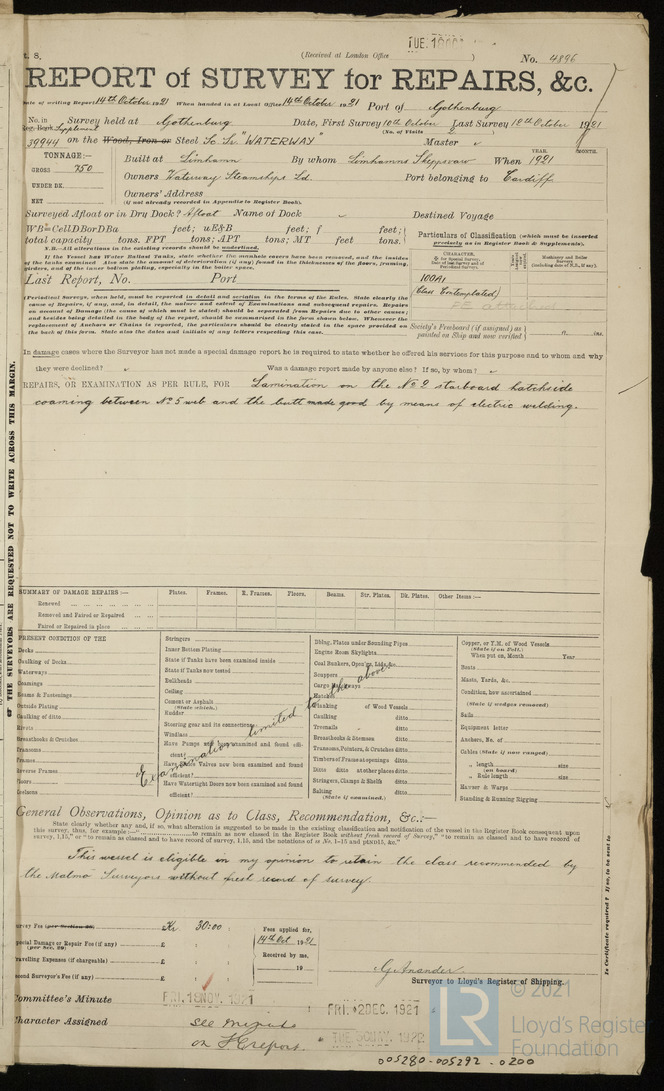 t. 8.
(Received at London Office
TUE. 18 OCT
)
No. 4896
REPORT of SURVEY for REPAIRS, &c.
Date of writing Report 14th October 1921 When handed in at Local Office 14th October 1921 Port of Gothenburg
No. in Reg. Book Supplement Survey held at Gothenburg Date, First Survey 10th October Last Survey 12th October 1921
(No. of Visits 2
39944 on the Wood, Iron or Steel Sc Sr "WATERWAY" Master
TONNAGE:—
GROSS 750
UNDER DK.
NET
Built at Limhamn By whom Limhamns Skeppsvarv When 1921
YEAR. MONTH.
Owners Waterway Steamships Ld. Port belonging to Cardiff
Owners' Address
(if not already recorded in Appendix to Register Book).
Surveyed Afloat or in Dry Dock? Afloat Name of Dock Destined Voyage
WB=CellDBorDBa feet; uE&B feet; f feet;
total capacity tons. FPT tons; APT tons; MT feet tons.
N.B.—All alterations in the existing records should be underlined.
If the Vessel has Water Ballast Tanks, state whether the manhole covers have been removed, and the insides of the tanks examined. Also state the amount of deterioration (if any) found in the thicknesses of the floors, framing, girders, and of the inner bottom plating, especially in the boiler space.
Last Report, No. Port
(Periodical Surveys, when held, must be reported in detail and seriatim in the terms of the Rules. State clearly the cause of Repairs, if any, and, in detail, the nature and extent of Examinations and subsequent repairs. Repairs on account of Damage (the cause of which must be stated) should be separated from Repairs due to other causes; and besides being detailed in the body of the report, should be summarised in the form shown below. Whenever the replacement of Anchors or Chains is reported, the particulars should be clearly stated in the space provided on the back of this form. State also the dates and initials of any letters respecting this case.
Particulars of Classification (which must be inserted precisely as in Register Book & Supplements).
CHARACTER.
100A1
(Class Contemplated)
Society's Freeboard (if assigned) as painted on Ship and now verified
In damage cases where the Surveyor has not made a special damage report he is required to state whether he offered his services for this purpose and to whom and why
they were declined? Was a damage report made by anyone else? If so, by whom?
REPAIRS, OR EXAMINATION AS PER RULE, FOR Lamination on the No 2 starboard hatchside
coaming between No 5 web and the butt made good by means of electric welding.
OF THE SURVEYORS ARE REQUESTED NOT TO WRITE ACROSS THIS MARGIN.
SUMMARY OF DAMAGE REPAIRS:— Plates. Frames. R. Frames. Floors. Beams. Str. Plates. Dk. Plates. Other Items:—
Renewed
Removed and Faired or Repaired
Faired or Repaired in place
PRESENT CONDITION OF THE
Decks
Caulking of Decks
Waterways
Coamings
Beams & Fastenings
Outside Plating
Caulking of ditto
Rivets
Breasthooks & Crutches
Transoms
Frames
Reverse Frames
Floors
Keelsons
Stringers
Inner Bottom Plating
State if Tanks have been examined inside
State if Tanks now tested
Bulkheads
Ceiling
Cement or Asphalt
(State which.)
Rudder
Steering gear and its connections
Windlass
Have Pumps now been examined and found efficient?
Have Sluice Valves now been examined and found efficient?
Have Watertight Doors now been examined and found efficient?
Dblng. Plates under Sounding Pipes
Engine Room Skylights
Coal Bunkers, Open'gs, Lids, &c.
Scuppers
Cargo Hatchways
Hatches
Planking of Wood Vessels
Caulking ditto
Treenails ditto
Breasthooks & Stemson ditto
Transoms, Pointers, & Crutches ditto
Timbers of Frame at openings ditto
Ditto ditto at other places ditto
Stringers, Clamps & Shelfs ditto
Salting ditto
(State if examined.)
Copper, or Y.M. of Wood Vessels
(State if on Felt.)
When put on, Month Year
Boats
Masts, Yards, &c.
Condition, how ascertained
(State if wedges removed)
Sails
Equipment letter
Anchors, No. of
Cables (State if now ranged)
„ length size
(on board)
„ Rule length size
Hawser & Warps
Standing & Running Rigging
Examination limited to the above
General Observations, Opinion as to Class, Recommendation, &c.:—
State clearly whether any and, if so, what alteration is suggested to be made in the existing classification and notification of the vessel in the Register Book consequent upon this survey, thus, for example:—" to remain as now classed in the Register Book without fresh record of Survey," "to remain classed and to have record of survey, 1,15," or "to remain classed and to have record of survey, 1,15, and the notations of ss No. 1-15 and ptND15, &c."
This vessel is eligible in my opinion to retain the class recommended by
the Malmö Surveyors without fresh record of survey.
Survey Fee (per Section 29) Kr 30:00
Special Damage or Repair Fee (if any) £
(per Sec. 29)
Travelling Expenses (if chargeable) £
Second Surveyor's Fee (if any) £
Fees applied for,
14th Oct 1921
Received by me,
19
Surveyor to Lloyd's Register of Shipping.
Is Certificate required? If so, to be sent to
Committee's Minute FRI. 18 NOV. 1921 FRI. 2 DEC. 1921
Character Assigned See minute
on
© 2021
LR
Lloyd's Register
Foundation
005280-005292-0200